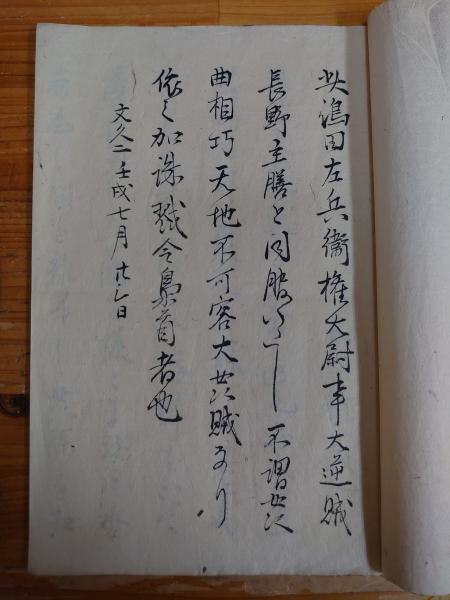 此嶋田左兵衞権大尉事大逆賊
長野主膳と同腹いたし不謂奸
曲相巧天地不可容大奸賊なり
依之加誅戮令梟首者也
文久二壬戌七月廿三日